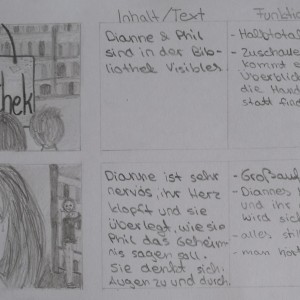 Inhalt/Text
Funkti
thek
Dianne & Phil
sind in der Bib-
liothek Visibles
- Halbtotal
- Zuschaue
kommt e
Überblick
die Hand
statt find
Dianne ist sehr
nervös, ihr Herz
klopft und sie
überlegt, wie sie
Phil das Geheim-
nis sagen soll.
Sie denkt sich:
Augen zu und durch.
- Großauf
- Diannes
und ihr
wird sich
- alles stil
- man hört